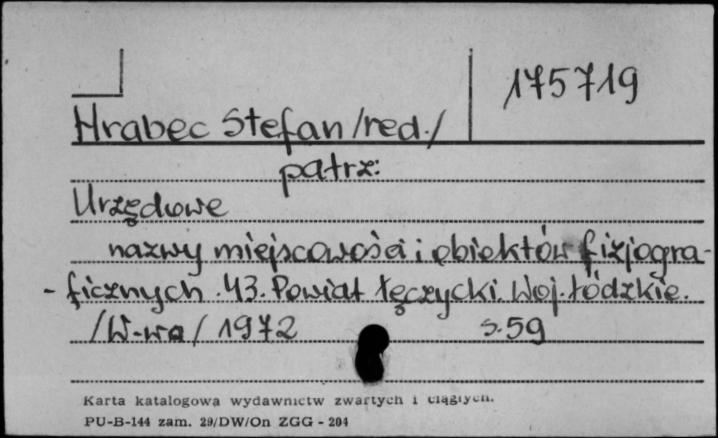 175719
Hrabec Stefan /red./
patrz:
Urzędowe
nazwy miejscowości i obiektów fizjogra-
- ficznych. 43. Powiat łęczycki. Woj. łódzkie.
/W-wa/ 1972 s. 59
Karta katalogowa wydawnictw zwartych i ciągłych.
PU-B-144 zam. 29/DW/On ZGG - 204